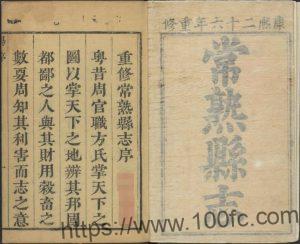 康熙二十六年重修
常熟縣志
重修常熟縣志序
粵昔周官職方氏掌天下之
圖以掌天下之地辨其邦國
都鄙之人與其財用穀畜之
數要周知其利害而志之意
https://www.100fc.com